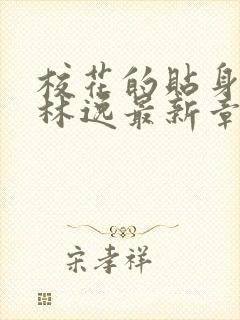 校花的贴身
林逸最新章
宋孝祥